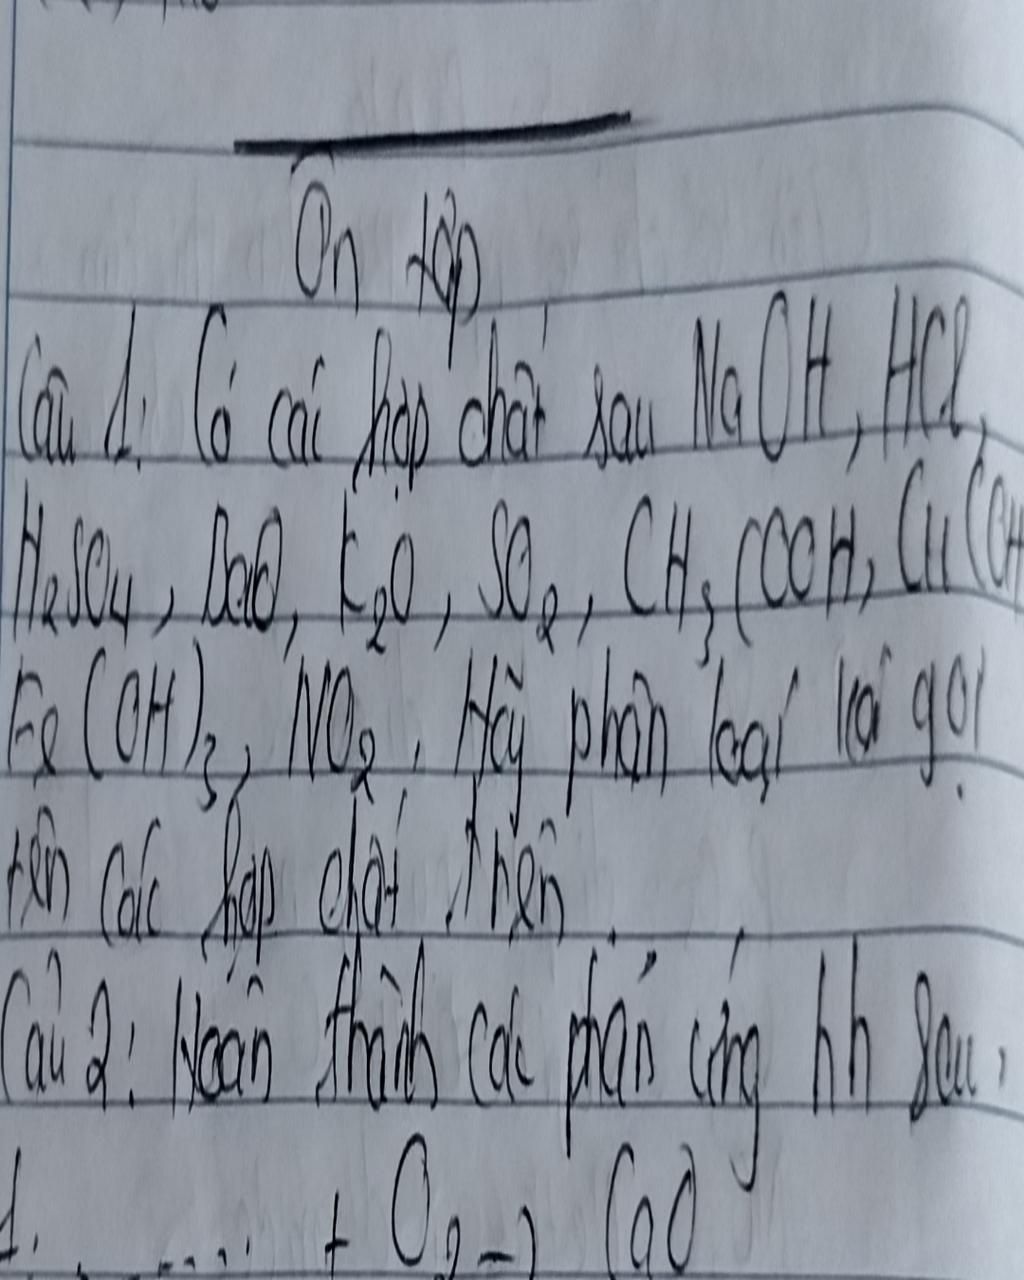 Ôn tập
Câu 1: Có cái hợp chất sau NaOH, HCl,
H2SO4, BaO, K2O, SO2, CH3COOH, Cu(OH
Fe(OH)3, NO2. Hãy phân loại và gọi
tên các hợp chất trên.
Câu 2: Hoàn thành các phản ứng hh sau.
1. ..... + O2 -> CaO